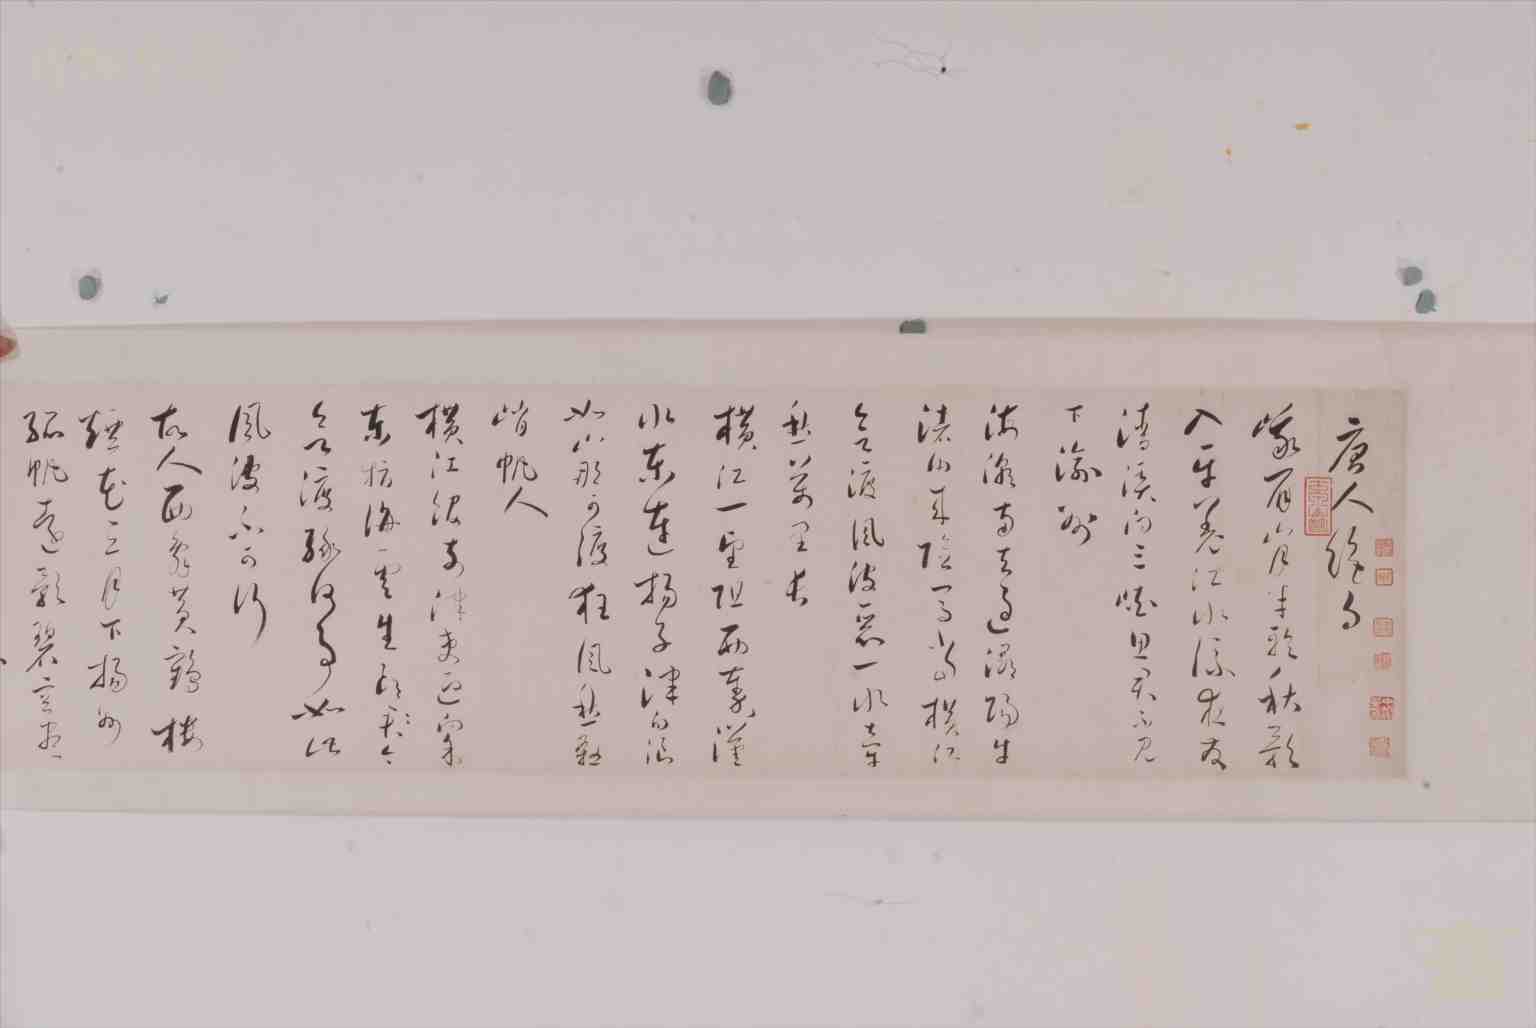 唐人絶句
峨眉山月半輪秋影
入平羌江水流夜發
清溪向三峽思君不見
下渝州
海潮南去過潯陽牛
渚由來險馬當橫江
欲渡風波惡一水牽
愁萬里長
橫江一望阻西秦漢
水東連揚子津白浪
如山那可渡狂風愁殺
峭帆人
橫江館前津吏迎向余
東指海雲生郎今
欲渡緣何事如此
風波不可行
故人西辭黃鶴樓
煙花三月下揚州
孤帆遠影碧空盡